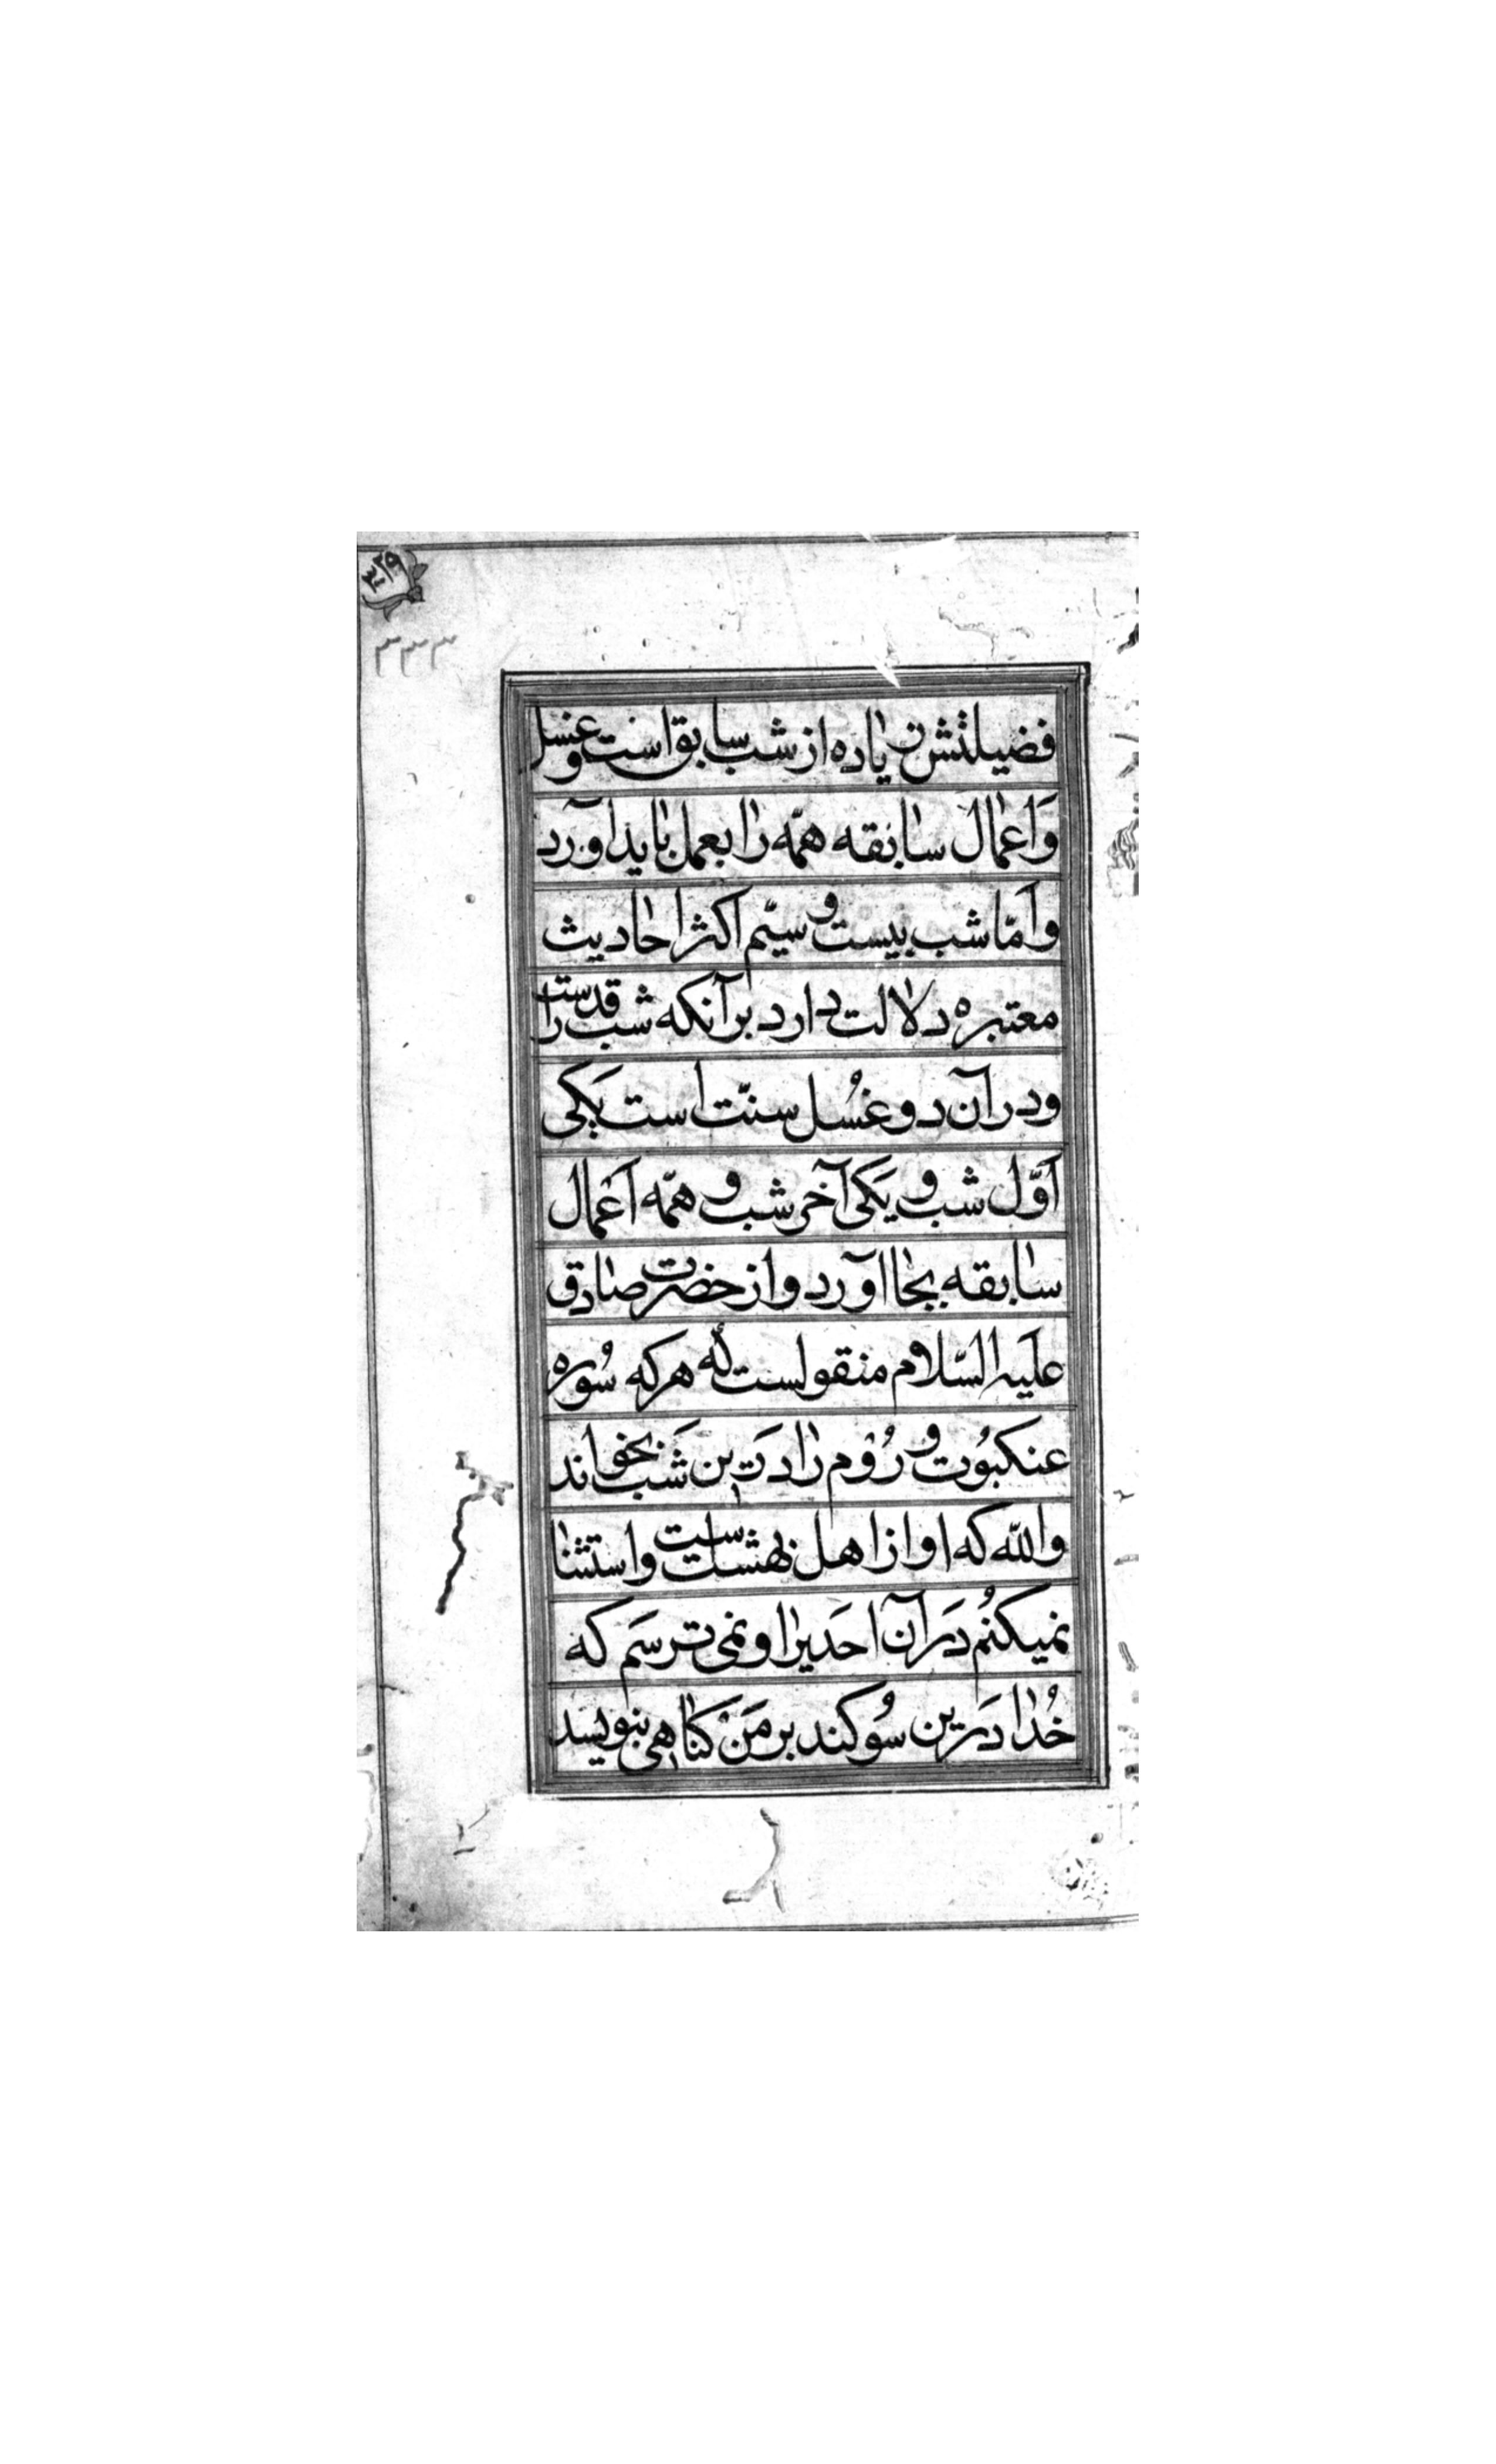 ۳۳۳
فضیلتش زیاده از شب سابق است و غسل
وَاَعمال سابقه همّه را بعمل باید اورد
واَمّا شب بیست و سیّم اکثر احادیث
معتبره دلالت دارد بر آنکه شب قدر است
و در آن دو غسُل سنّت است یَکی
اَوّل شب و یَکی آخر شب و همّه اَعمال
سابقه بجا اورد و از حضرت صادق
علَیه السّلام منقولست که هر که سُوره
عنکبوُت و رُوْم را دَرین شَب بخواند
واللّه که او از اهل بهشت است و استثنا
نمیکنُم دَر آن احدَیرا و نمی ترسَم که
خُدا دَرین سوُکند بر مَنْ کناهی بنویسد